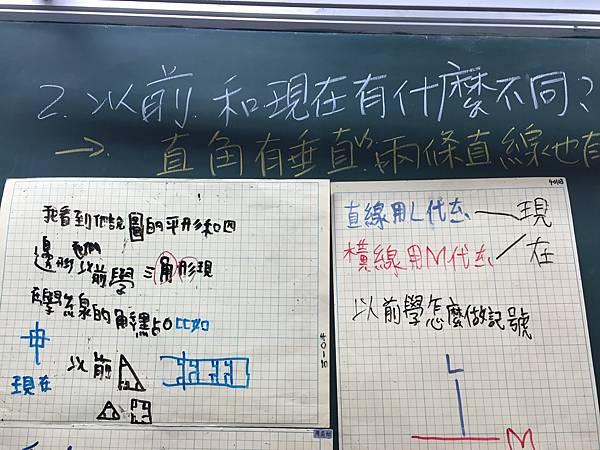 2. 以前和現在有什麼不同?
→ 直角有垂直、兩條直線也有
我看到他們說圖的平形和四
邊形 他們以前學 三角形現
在學線的角 比如
現在
以前
40-10
直線用L代表
橫線用M代表
現在
以前學怎麼做記號
L
M